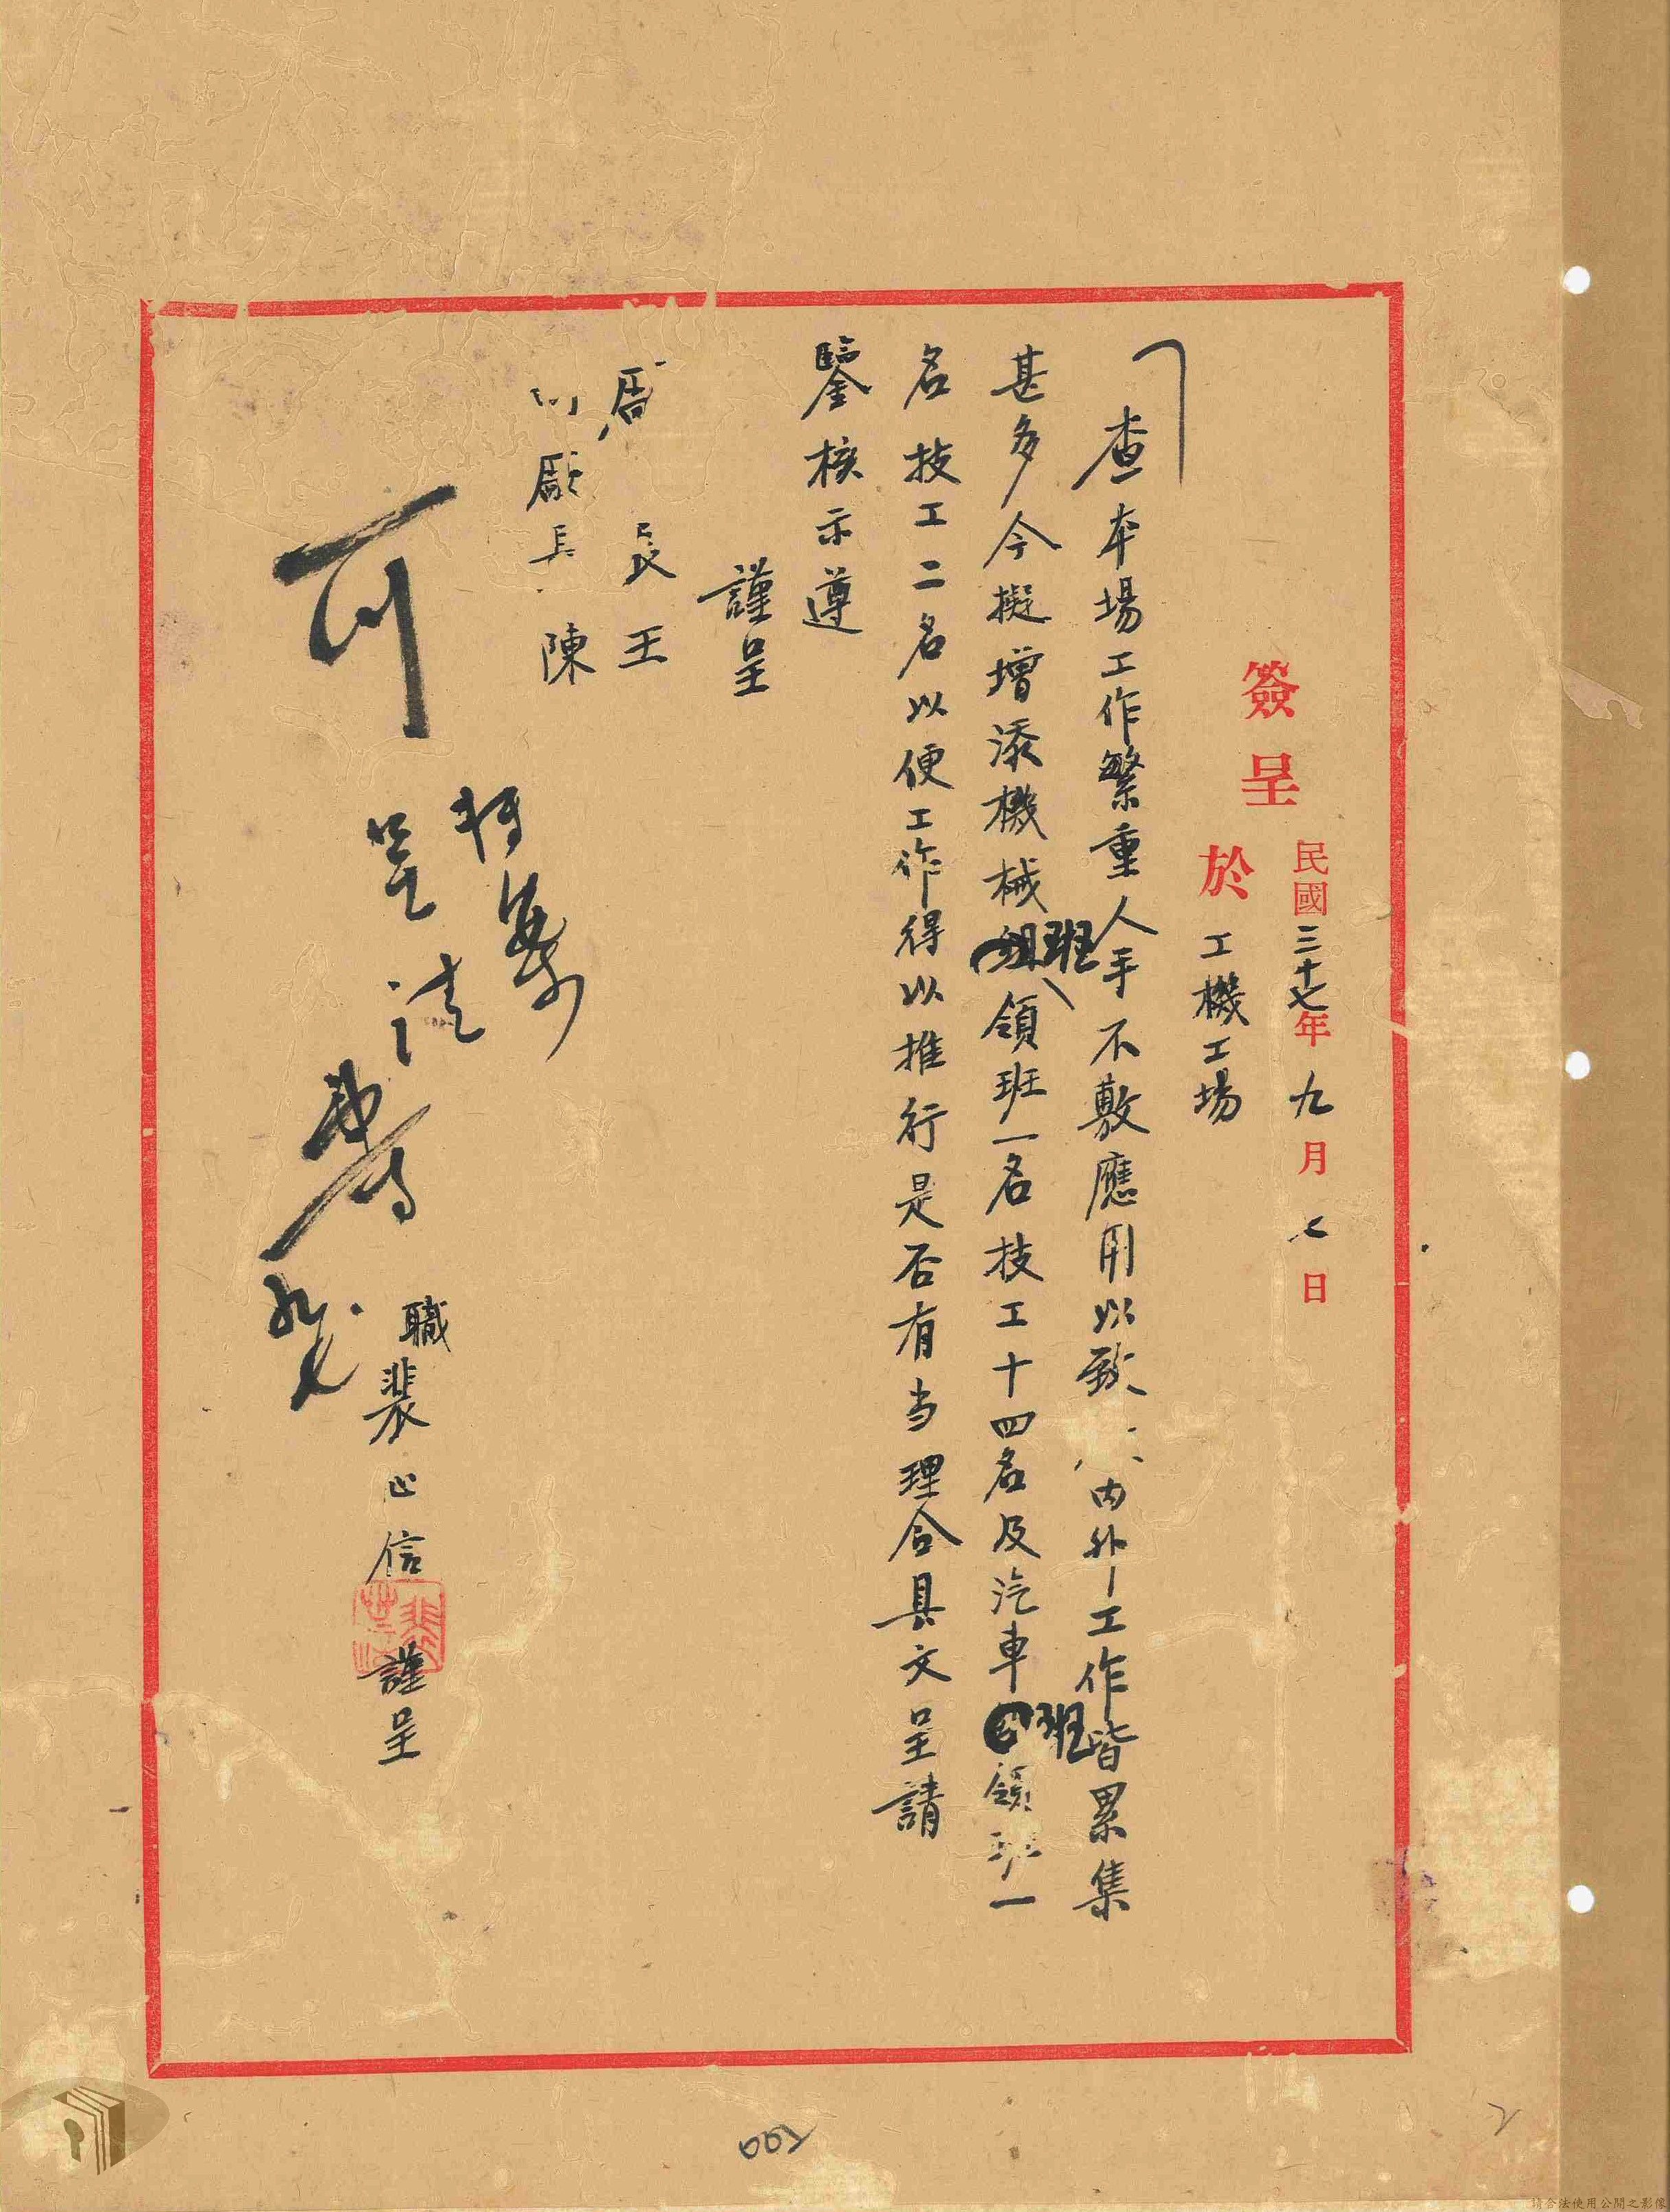 簽呈
民國三十七年九月七日
於工機工場
查本場工作繁重人手不敷應用以致內外工作皆累集
甚多今擬增添機械班領班一名技工十四名及汽車班領班一
名技工二名以便工作得以推行是否有当理合具文呈請
鑒核示遵
謹呈
廠長王
副廠長陳
可
職裴正信謹呈
2
請合法使用公開之影像